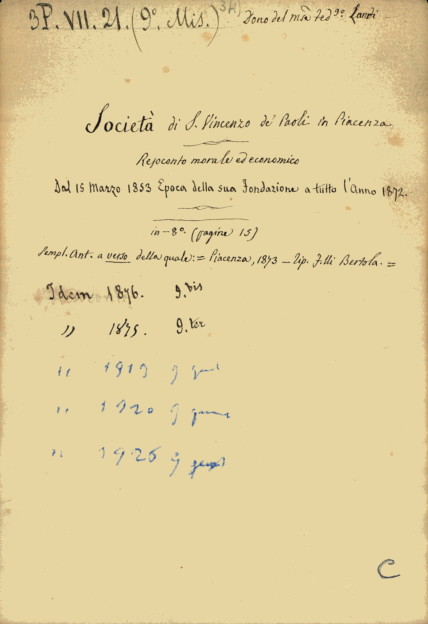 3P. VII. 21. (9º. Mis.) Dono del Landi
Società di S. Vincenzo de' Paoli in Piacenza
Resoconto morale ed economico
Dal 15 Marzo 1853 Epoca della sua Fondazione a tutto l'Anno 1872.
in-8º. (pagine 15)
Sempl. Ant. a verso della quale: = Piacenza, 1873 - Tip. F.lli Bertola. =
Idem 1876. 9. bis
" 1875. 9. ter
" 1919 9
" 1920 9
" 1926 9
C